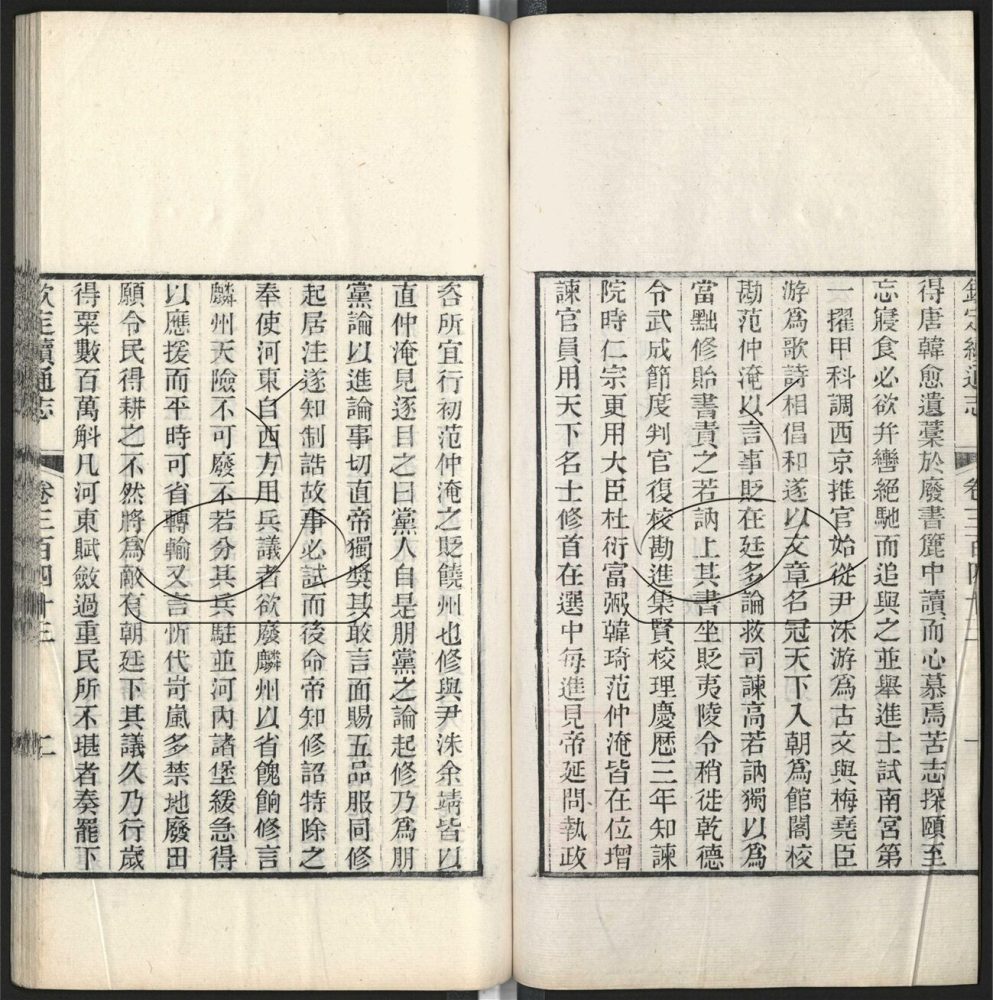 欽定續通志　卷三百四十三　一
得唐韓愈遺藁於廢書簏中讀而心慕焉苦志探賾至
忘寢食必欲幷轡絕馳而追與之並舉進士試南宮第
一擢甲科調西京推官始從尹洙游爲古文與梅堯臣
游爲歌詩相倡和遂以文章名冠天下入朝爲館閣校
勘范仲淹以言事貶在廷多論救司諫高若訥獨以爲
當黜修貽書責之若訥上其書坐貶夷陵令稍徙乾德
令武成節度判官復校勘進集賢校理慶歷三年知諫
院時仁宗更用大臣杜衍富弼韓琦范仲淹皆在位增
諫官員用天下名士修首在選中每進見帝延問執政
咨所宜行初范仲淹之貶饒州也修與尹洙余靖皆以
直仲淹見逐目之曰黨人自是朋黨之論起修乃爲朋
黨論以進論事切直帝獨獎其敢言面賜五品服同修
起居注遂知制誥故事必試而後命帝知修詔特除之
奉使河東自西方用兵議者欲廢麟州以省餽餉修言
麟州天險不可廢不若分其兵駐並河內諸堡緩急得
以應援而平時可省轉輸又言忻代岢嵐多禁地廢田
願令民得耕之不然將爲敵有朝廷下其議久乃行歲
得粟數百萬斛凡河東賦斂過重民所不堪者奏罷下
欽定續通志　卷三百四十三　二